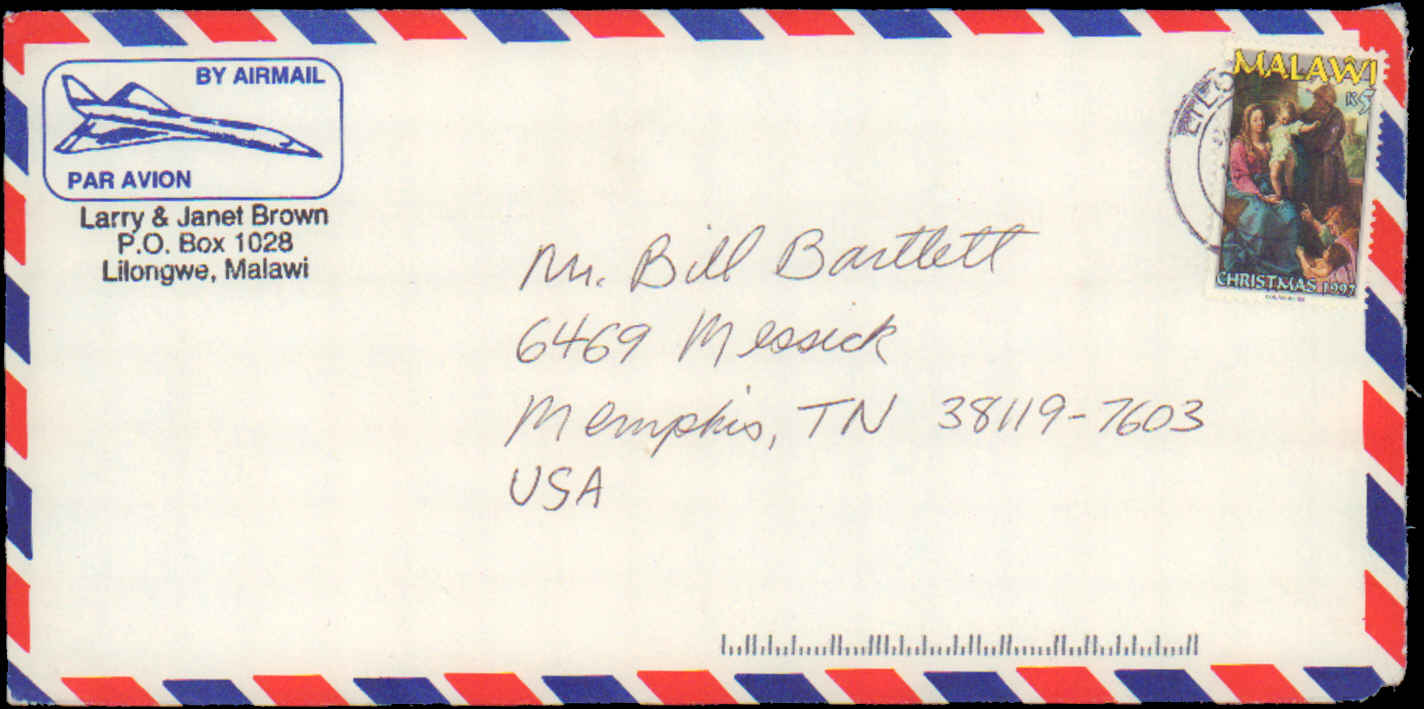 BY AIRMAIL
PAR AVION
Larry & Janet Brown
P.O. Box 1028
Lilongwe, Malawi
MALAWI
K5
CHRISTMAS 1997
Mr. Bill Bartlett
6469 Messick
Memphis, TN 38119-7603
USA